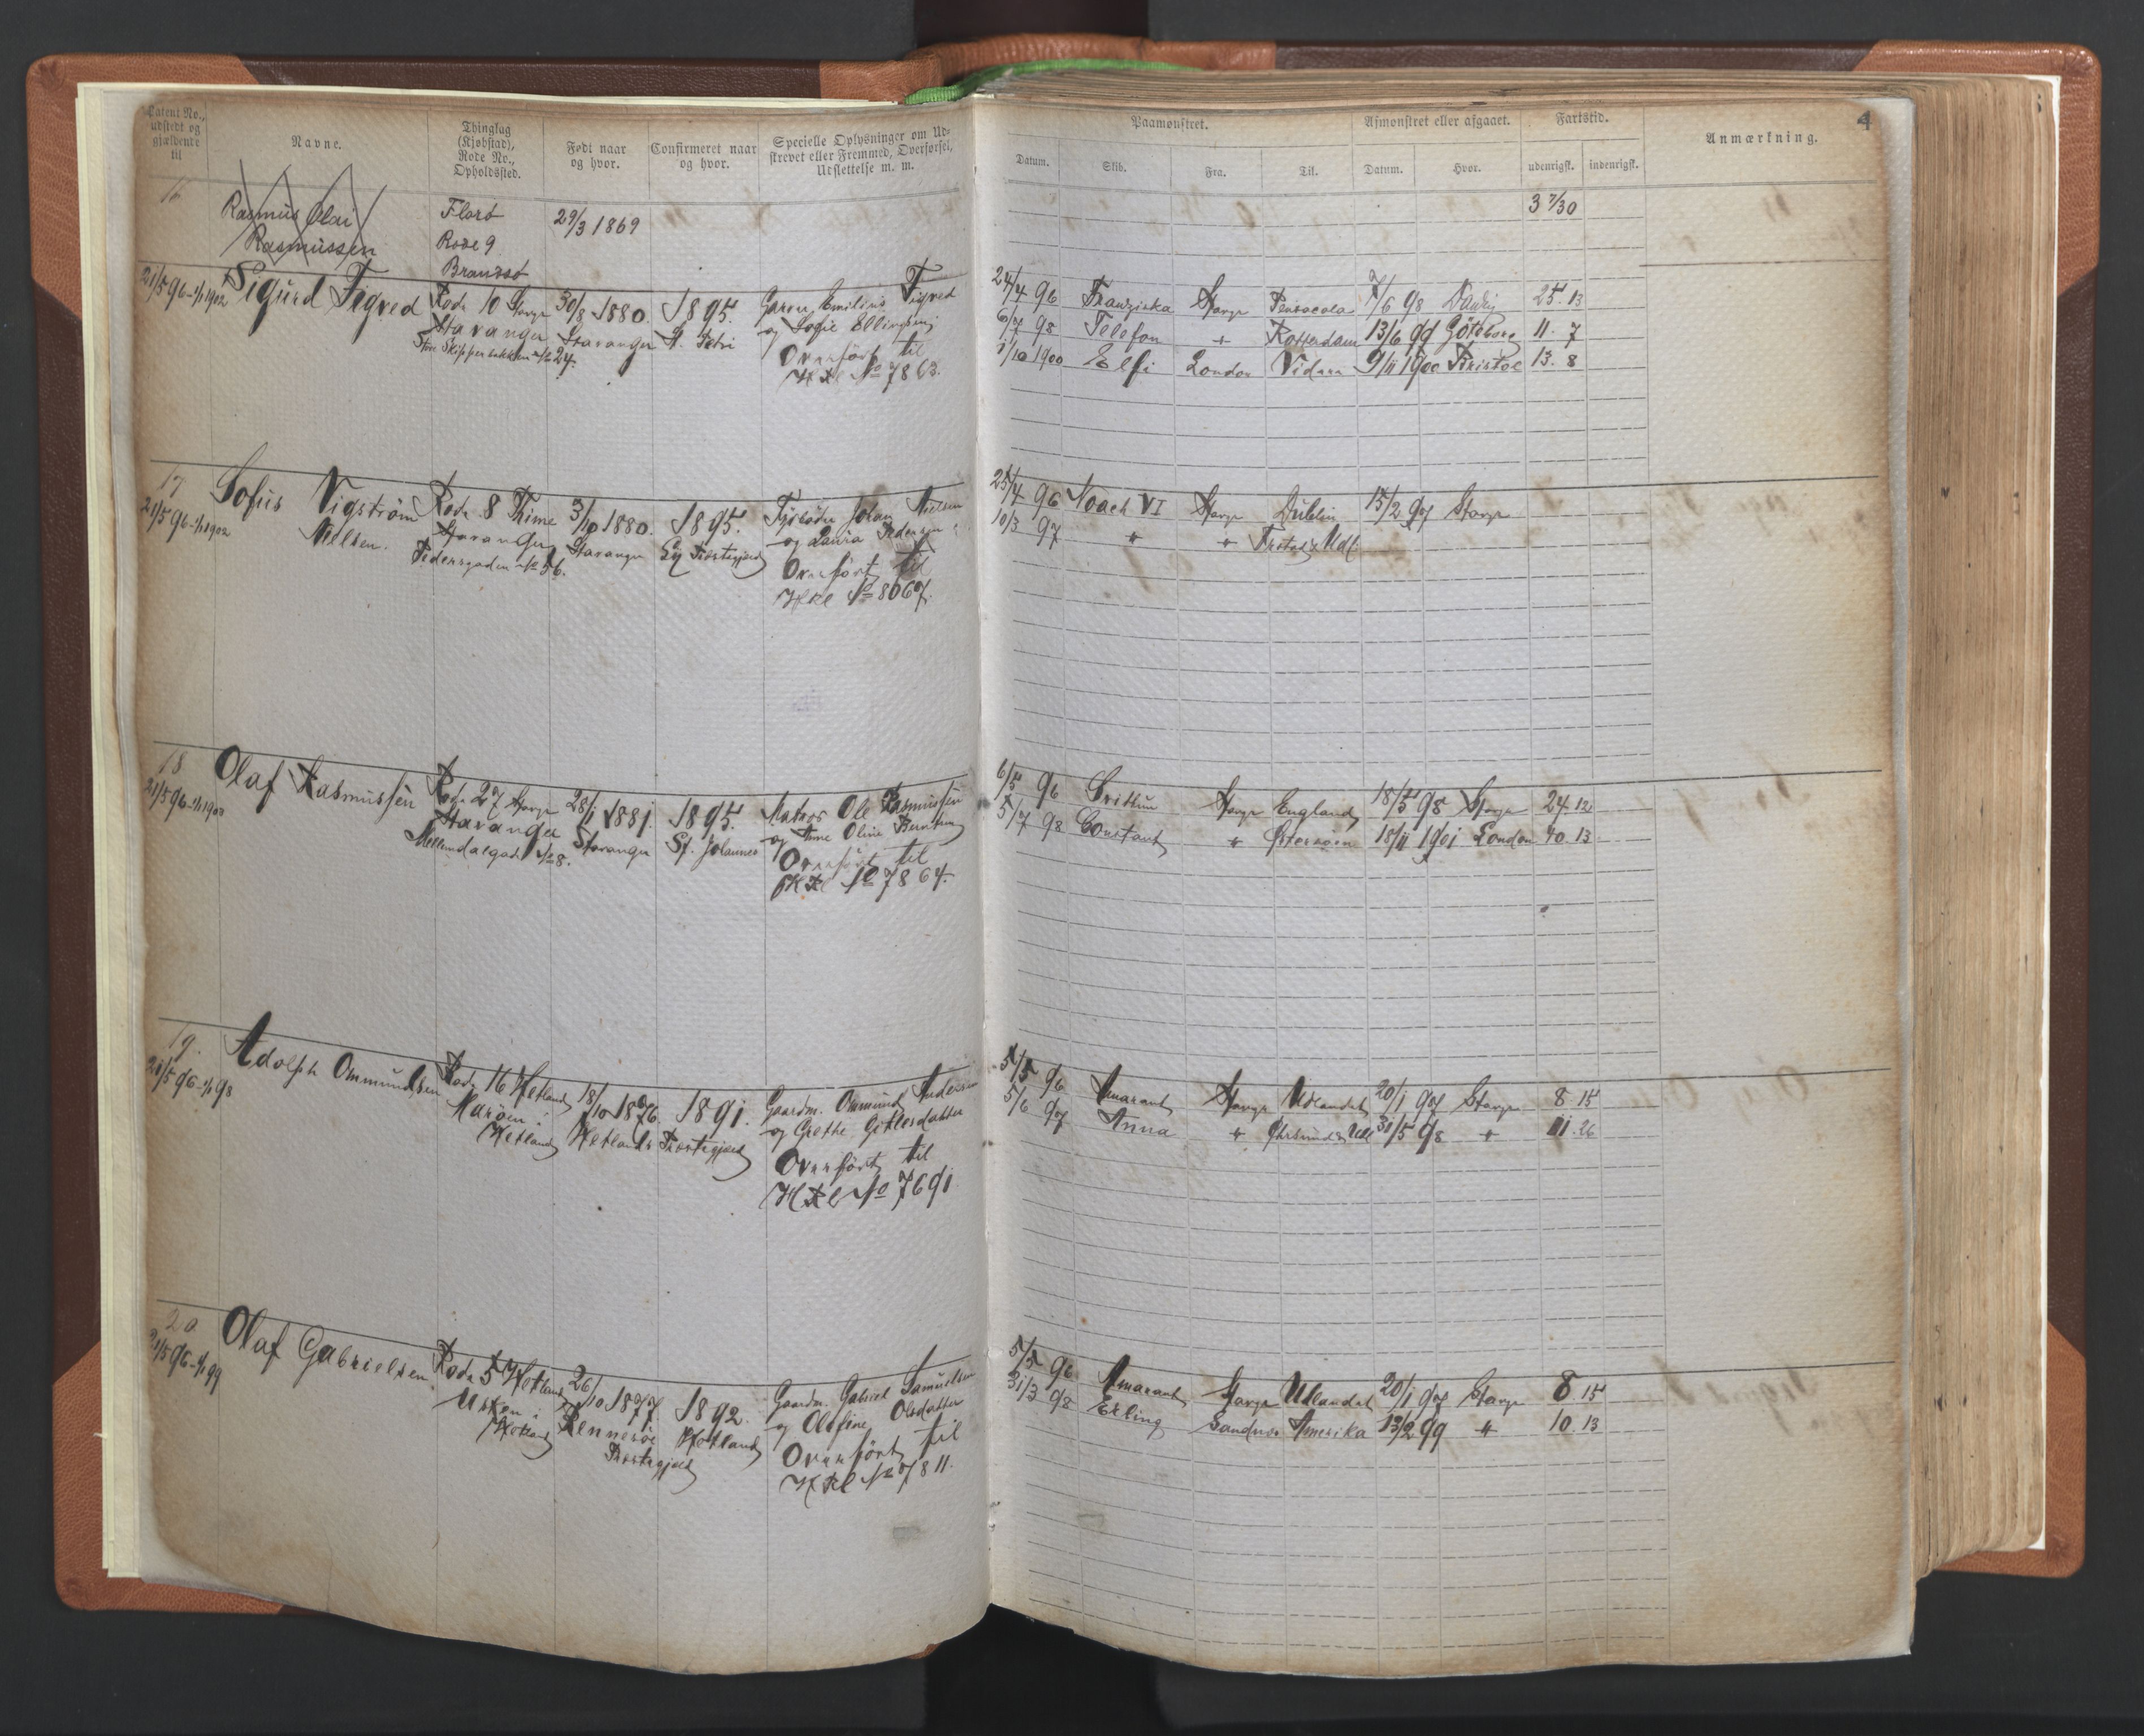 Patent No., udstedt og gjældende til
Navne.
Thinglag (Kjøbstad), Rode No., Opholdssted.
Født naar og hvor.
Confirmeret naar og hvor.
Specielle Oplysninger om Ud- strevet eller Fremmed, Overførsel, Udslettelse m. m.
Paamønstret.
Afmønstret eller afgaaet.
Fartstid.
Anmærkning.
4
Datum.
Skib.
Fra.
Til.
Datum.
Hvor.
udenrigsk.
indenrigsk.
16
Rasmus Olai
Rasmussen
Florø
Rode 9
Brandsø
29/3 1869
3 7/30
21/5 96-1/1 1902
Sigurd Tigved
Rode 10 Stavgr
Stavanger
Store Skipper No 24.
30/8 1880.
Stavanger
1895.
St. Petri
Garver Emilius Tigved
og Sofie Ellingsen
Overført til
HRl No 7863.
24/4 96 Franziska Stavgr Pensacola 7/6 98 25. 13
6/7 98 Telefon " Rotterdam 13/6 99 Göteborg 11. 7
1/10 1900 Elfi London 9/11 1900 13. 8
17
21/5 96-1/1 1902
Sofus Vigstrøm
Nielsen.
Rode 8 Thime
Stavanger
Pedersgaden No 56.
3/10 1880.
Stavanger
1895.
Johan Nielsen
og Laura Pedersen
Overført til
HRl No 8067.
25/4 96 Noach VI Stavgr Dublin 15/2 97 Stavgr
10/3 97 " " Udl
18
21/5 96-1/1 1903
Olaf Rasmussen
Rode 27 Stavgr
Stavanger
No 8.
28/1 1881.
Stavanger
1895.
St. Johannes
Matros Ole Rasmussen
og Ane Oline Berntsen
Overført til
HRl No 7864.
6/5 96 Stavgr England 18/5 98 Stavgr 24. 12
5/7 98 Constant " Østersøen 18/11 1901 London 40. 13
19.
21/5 96-1/1 98
Adolph Ommundsen
Rode 16 Hetland
Marøen i
Hetland
18/10 1876
Hetlands
1891.
Præstegjeld
Gaardm. Ommund Andersen
og Grethe Gitlesdatter
Overført til
HRl No 7691
5/5 96 Amarant Stavgr Udlandet 20/1 97 Stavgr 8 15
5/6 97 Anna " Udl 31/5 98 " 11. 26
20
21/5 96-1/1 99
Olaf Gabrielsen
Rode 5 Hetland
Usken i
Hetland
26/10 1877.
Rennesøe
Præstegjeld
1892.
Hetland
Gaardm. Gabriel Samuelsen
og Olefine Olsdatter
Overført til
HRl No 7811.
5/5 96 Amarant Stavgr Udlandet 20/1 97 Stavgr 8 15
31/3 98 Erling Sandnes Amerika 13/2 99 " 10. 13